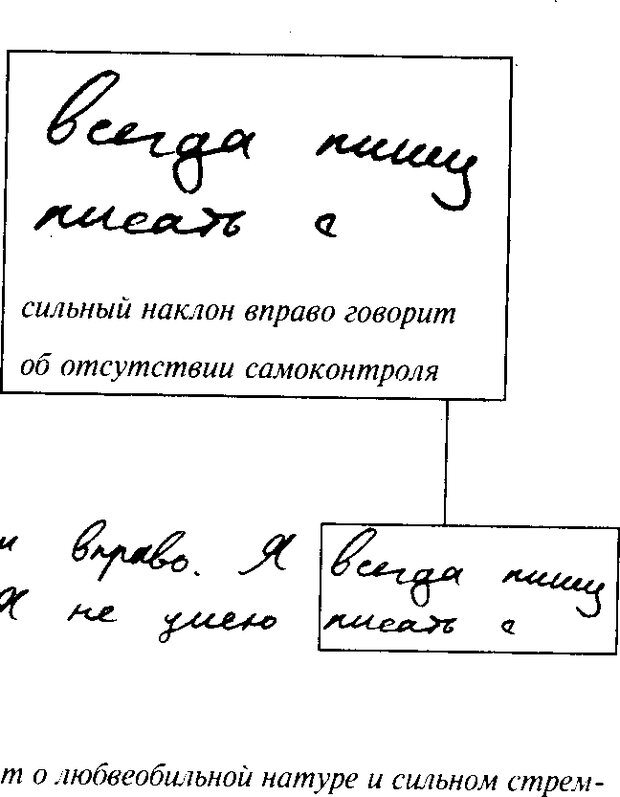 всегда пишу
писать с
сильный наклон вправо говорит
об отсутствии самоконтроля
и вправо. Я всегда пишу
Я не умею писать с
т о любвеобильной натуре и сильном стрем-